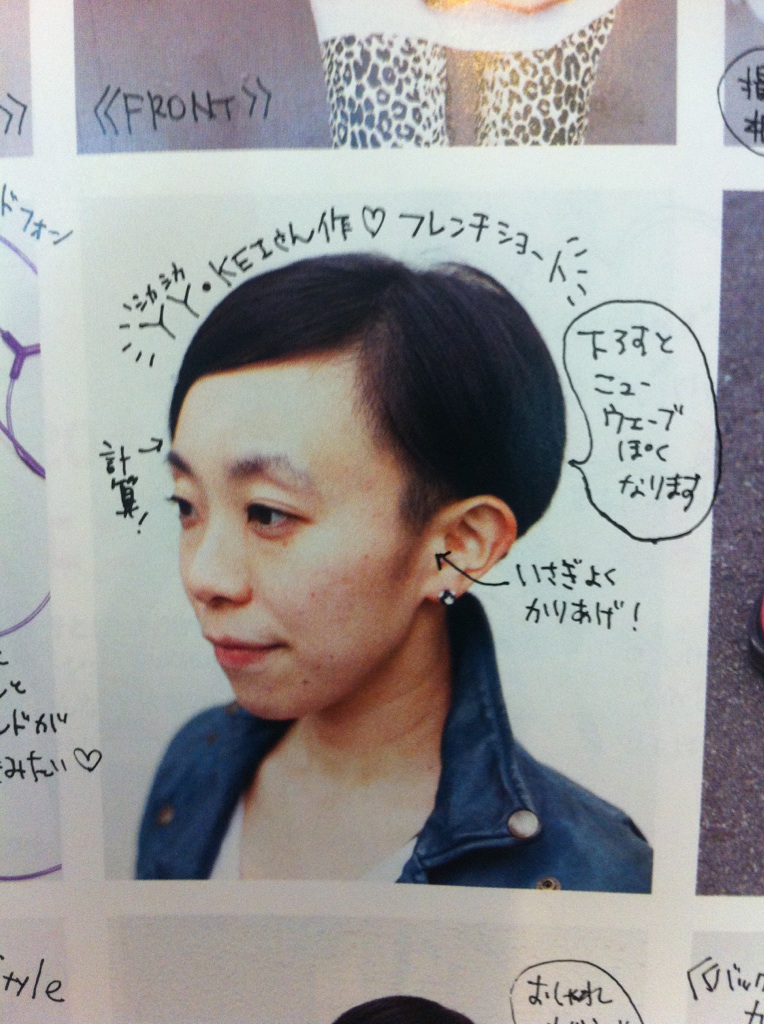 《FRONT》
ドフォン
シカシカ
YY・KEIさん作♡ フレンチショート
下ろすと
ニュー
ウェーブ
ぽく
なります
計
算!
いさぎよく
かりあげ!
と
ドが
みたい♡
style
おしゃれ
バック